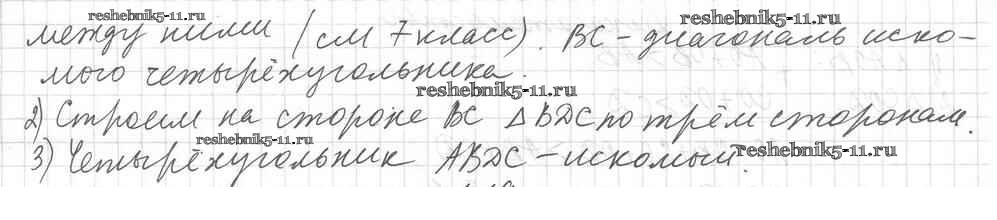 reshebnik5-11.ru
reshebnik5-11.ru
между ними (см 7 класс). BC - диагональ иско-
мого четырёхугольника.
reshebnik5-11.ru
2) Строим на стороне BC △BDC по трём сторонам.
reshebnik5-11.ru
3) Четырёхугольник ABDC - искомый.
reshebnik5-11.ru